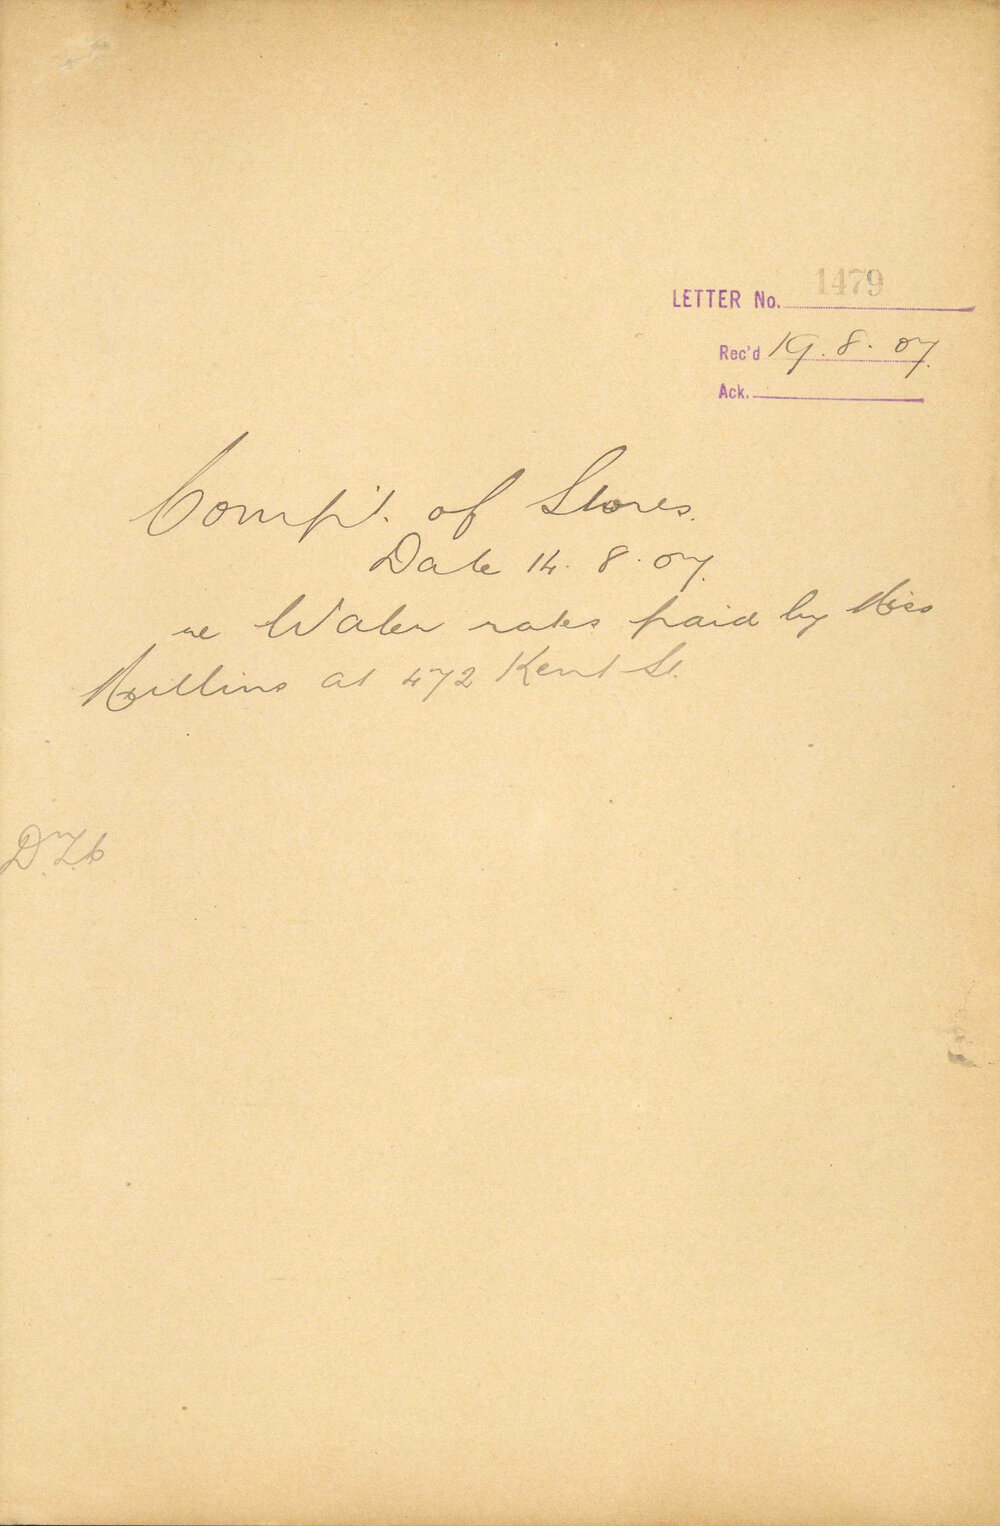 LETTER No. 1479
Rec'd 19.8.07.
Ack.
Comp't. of Stores.
Date 14.8.07.
re Water rates paid by Miss
Mullins at 472 Kent St.